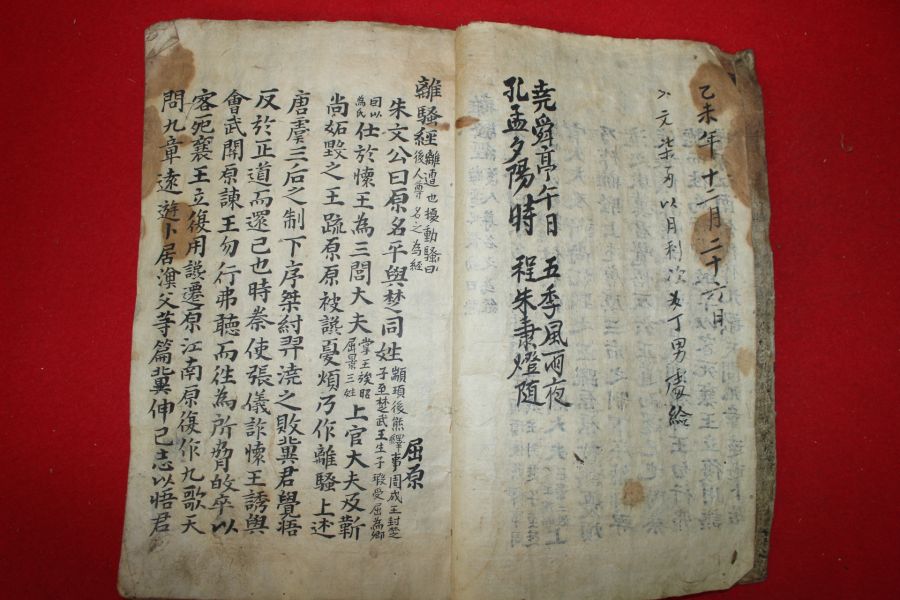 乙未年十一月二十六日
文柒兩以月利次為丁男處給
堯舜亭午日 五季風雨夜
孔孟夕陽時 程朱秉燈随
離騷經離遭也擾動騷曰後人尊名之為經
屈原
朱文公曰原名平與楚同姓顓頊後熊繹事周成王封楚子至楚武王生子瑕受屈為卿
因以為氏仕於懷王為三閭大夫掌王族昭屈景三姓上官大夫及靳
尚妬毀之王疏原原被讒憂煩乃作離騷上述
唐虞三后之制下序桀紂羿澆之敗冀君覺悟
反於正道而還己也時秦使張儀詐懷王誘與
會武関原諫王勿行弗聽而徃為所脅的卒以
客死襄王立復用讒遷原江南原復作九歌天
問九章遠遊卜居漁父等篇冀伸己志以悟君